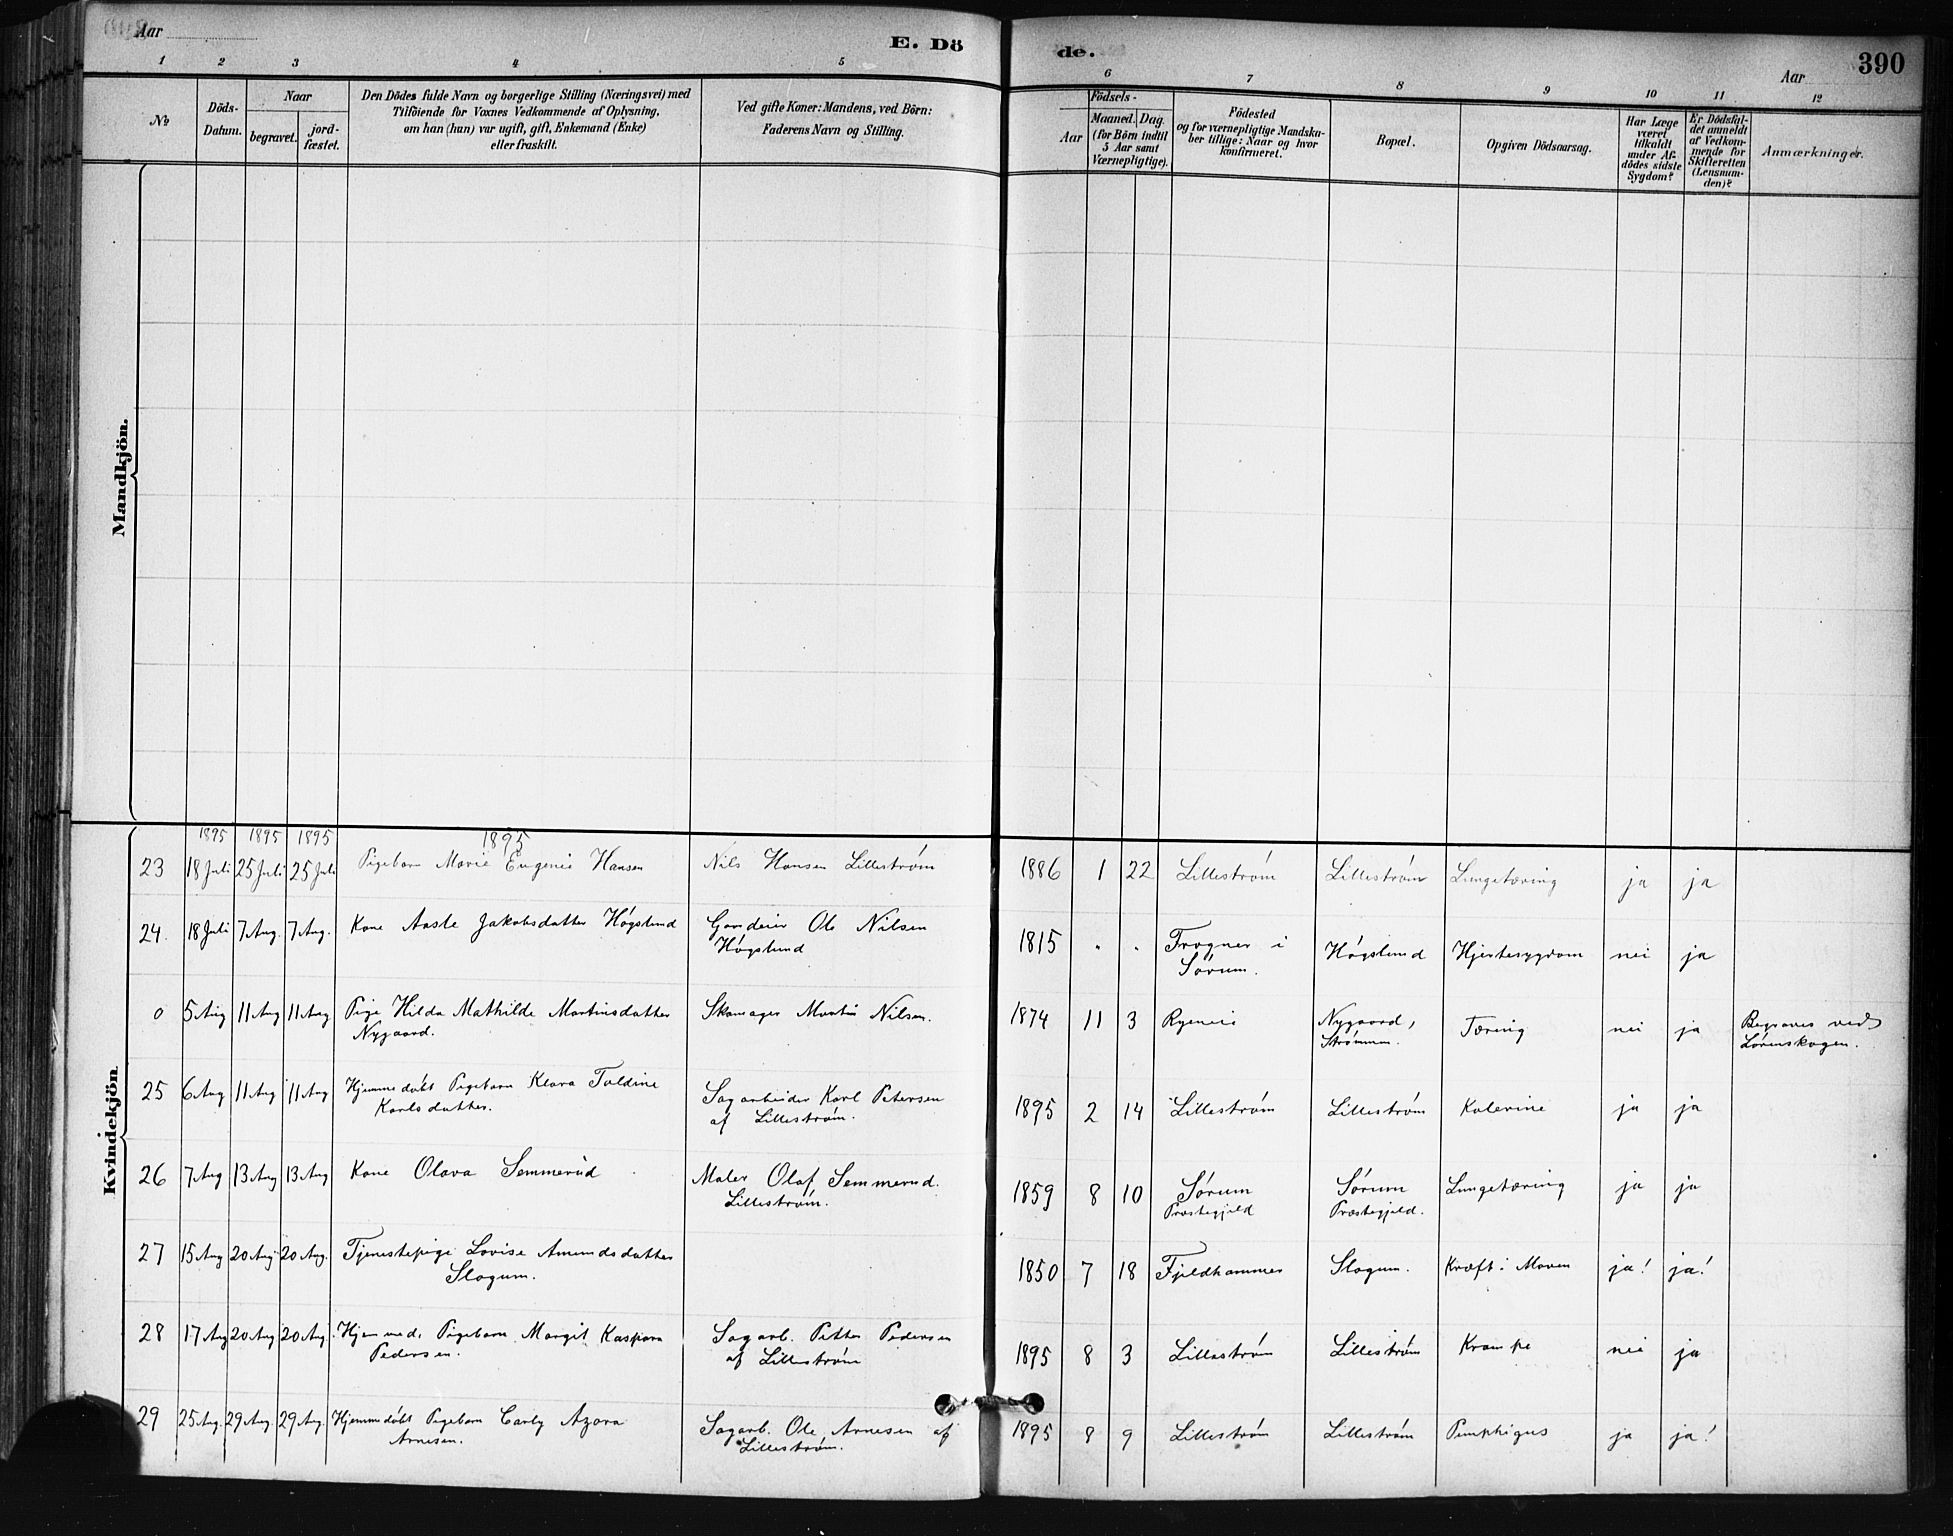 Aar
E. Dö
de.
Aar
390
1 2 3 4 5 6 7 8 9 10 11 12
No
Döds-
Datum.
Naar
begravet.
jord-
fæstet.
Den Dödes fulde Navn og borgerlige Stilling (Næringsvei) med
Tilföiende for Voxnes Vedkommende af Oplysning,
om han (hun) var ugift, gift, Enkemand (Enke)
eller fraskilt.
Ved gifte Koner: Mandens, ved Börn:
Faderens Navn og Stilling.
Födsels-
Aar
Maaned. Dag.
(for Börn indtil
5 Aar samt
Værnepligtige).
Födested
og for værnepligtige Mandska-
ber tillige: Naar og hvor
konfirmeret.
Bopæl.
Opgiven Dödsaarsag.
Har Læge
været
tilkaldt
under Af-
dödes sidste
Sygdom?
Er Dödsfal-
det anmeldt
af Vedkom-
mende for
Skifteretten
(Lensman-
den)?
Anmærkninger.
Mandkjön.
Kvindekjön
1895 1895 1895 1895
23 18 Juli 25 Juli 25 Juli Pigebarn Marie Eugenie Hansen Nils Hansen Lillestrøm 1886 1 22 Lillestrøm Lillestrøm Lungetæring ja ja
24. 18 Juli 7 Aug. 7 Aug. Kone Aaste Jakobsdatter Høgslund Gaardeier Ole Nilsen 1815 " " Frogner i Høgslund Hjertesygdom nei ja
Høgslund Sørum.
0 5 Aug 11 Aug 11 Aug Pige Hilda Mathilde Martinsdatter Skomager Martin Nilsen. 1874 11 3 Nygaard, Tæring nei ja Begraves ved
Nygaard. Strømmen. Lørenskogen.
25 6 Aug 11 Aug 11 Aug Hjemmedøbt Pigebarn Klara Toldine Sagarbeider Karl Petersen 1895 2 14 Lillestrøm Lillestrøm Kolerine ja ja
Karlsdatter. af Lillestrøm.
26 7 Aug 13 Aug 13 Aug Kone Olava Semmerud Maler Olaf Semmerud. 1859 8 10 Sørum Sørum Lungetæring ja ja
Lillestrøm. Præstegjeld Præstegjeld.
27 15 Aug 20 Aug 20 Aug. Tjenestepige Lovise Amundsdatter 1850 7 18 Fjeldhammer Slogum. Kræft i Maven ja! ja!
Slogum.
28 17 Aug 20 Aug 20 Aug. Hjemmed. Pigebarn Margit Kaspara Sagarb. Petter Pedersen 1895 8 3 Lillestrøm Lillestrøm Krampe nei ja
Pedersen. af Lillestrøm
29 25 Aug. 29 Aug. 29 Aug. Hjemmedøbt Pigebarn Carly Azora Sagarb. Ole Arnesen af 1895 8 9 Lillestrøm Lillestrøm Pemphigus ja ja!
Arnesen. Lillestrøm.